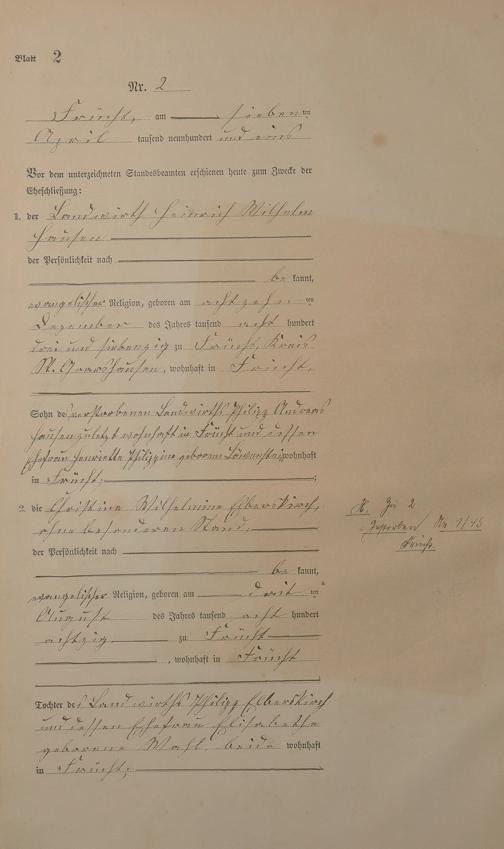 Blatt 2
Nr. 2
Frücht, am sieben ten
April tausend neunhundert und eins
Vor dem unterzeichneten Standesbeamten erschienen heute zum Zwecke der
Eheschließung:
1. der Landwirth Heinrich Wilhelm
Hausen
der Persönlichkeit nach
be kannt,
evangelischer Religion, geboren am achtzehn ten
Dezember des Jahres tausend acht hundert
drei und siebenzig zu Frücht, Kreis
St. Goarshausen, wohnhaft in Frücht,
Sohn des verstorbenen Landwirths Philipp Andreas
Hausen zuletzt wohnhaft in Frücht und dessen
Ehefrau Henriette Philippine geborene Löwenstein wohnhaft
in Frücht;
2. die Christine Wilhelmine Elberskirch,
ohne besonderen Stand,
der Persönlichkeit nach
be kannt,
evangelischer Religion, geboren am drit ten
August des Jahres tausend acht hundert
achtzig zu Frücht
, wohnhaft in Frücht
Tochter des Landwirths Philipp Elberskirch
und dessen Ehefrau Elisabetha
geborene Wahl beide wohnhaft
in Frücht;
Zu 2
Gestorben Nr 1/45
Frücht